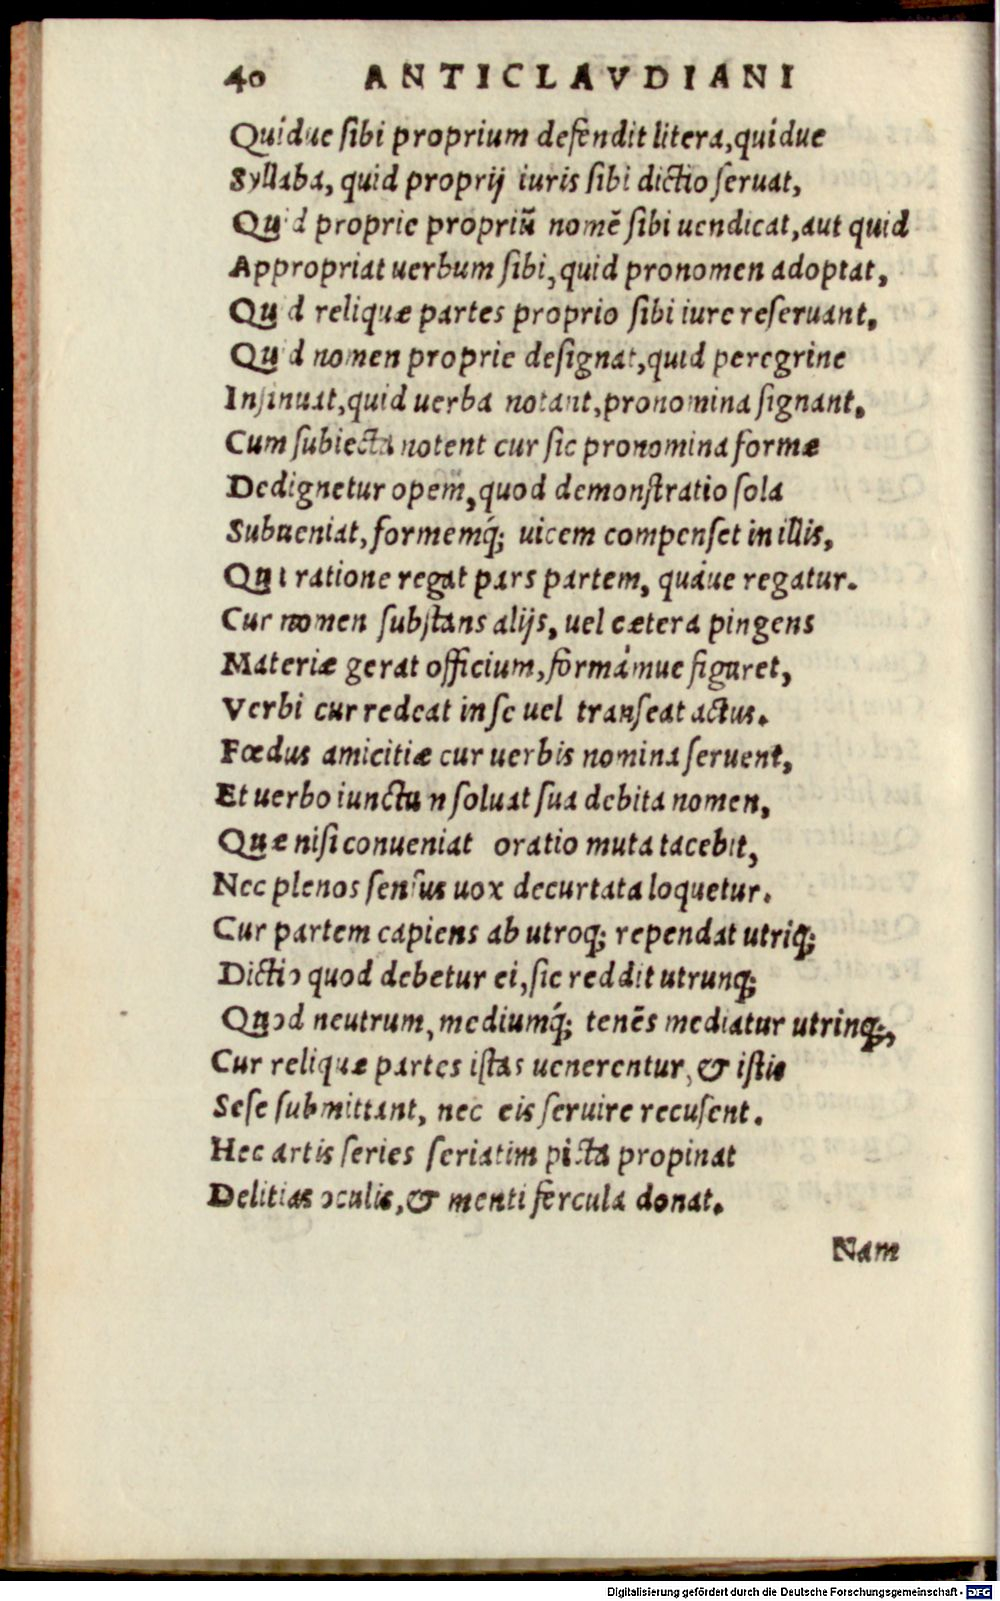 40 ANTICLAVDIANI
Quidue ſibi proprium defendit litera, quidue
Syllaba, quid proprij iuris ſibi dictio ſeruat,
Quid proprie propriũ nomẽ ſibi uendicat, aut quid
Appropriat uerbum ſibi, quid pronomen adoptat,
Quid reliquæ partes proprio ſibi iure reſeruant,
Quid nomen proprie deſignat, quid peregrine
Inſinuat, quid uerba notant, pronomina ſignant.
Cum ſubiecta notent cur ſic pronomina formæ
Dedignetur opem, quod demonſtratio ſola
Subueniat, formemq́; uicem compenſet in illis,
Qui ratione regat pars partem, quáue regatur.
Cur nomen ſubſtans alijs, uel cætera pingens
Materiæ gerat officium, formámue figuret,
Verbi cur redeat in ſe uel tranſeat actus.
Fœdus amicitiæ cur uerbis nomina ſeruent,
Et uerbo iunctũ n ſoluat ſua debita nomen,
Quæ niſi conueniat oratio muta tacebit,
Nec plenos ſenſus uox decurtata loquetur.
Cur partem capiens ab utroq; rependat utriq;
Dictio quod debetur ei, ſic reddit utrunq;
Quod neutrum, mediumq́; tenẽs mediatur utrinq;,
Cur reliquæ partes iſtas uenerentur, & iſtis
Seſe ſubmittant, nec eis ſeruire recuſent.
Hec artis ſeries ſeriatim picta propinat
Delitias oculis, & menti fercula donat.
Nam
Digitalisierung gefördert durch die Deutsche Forschungsgemeinschaft - DFG